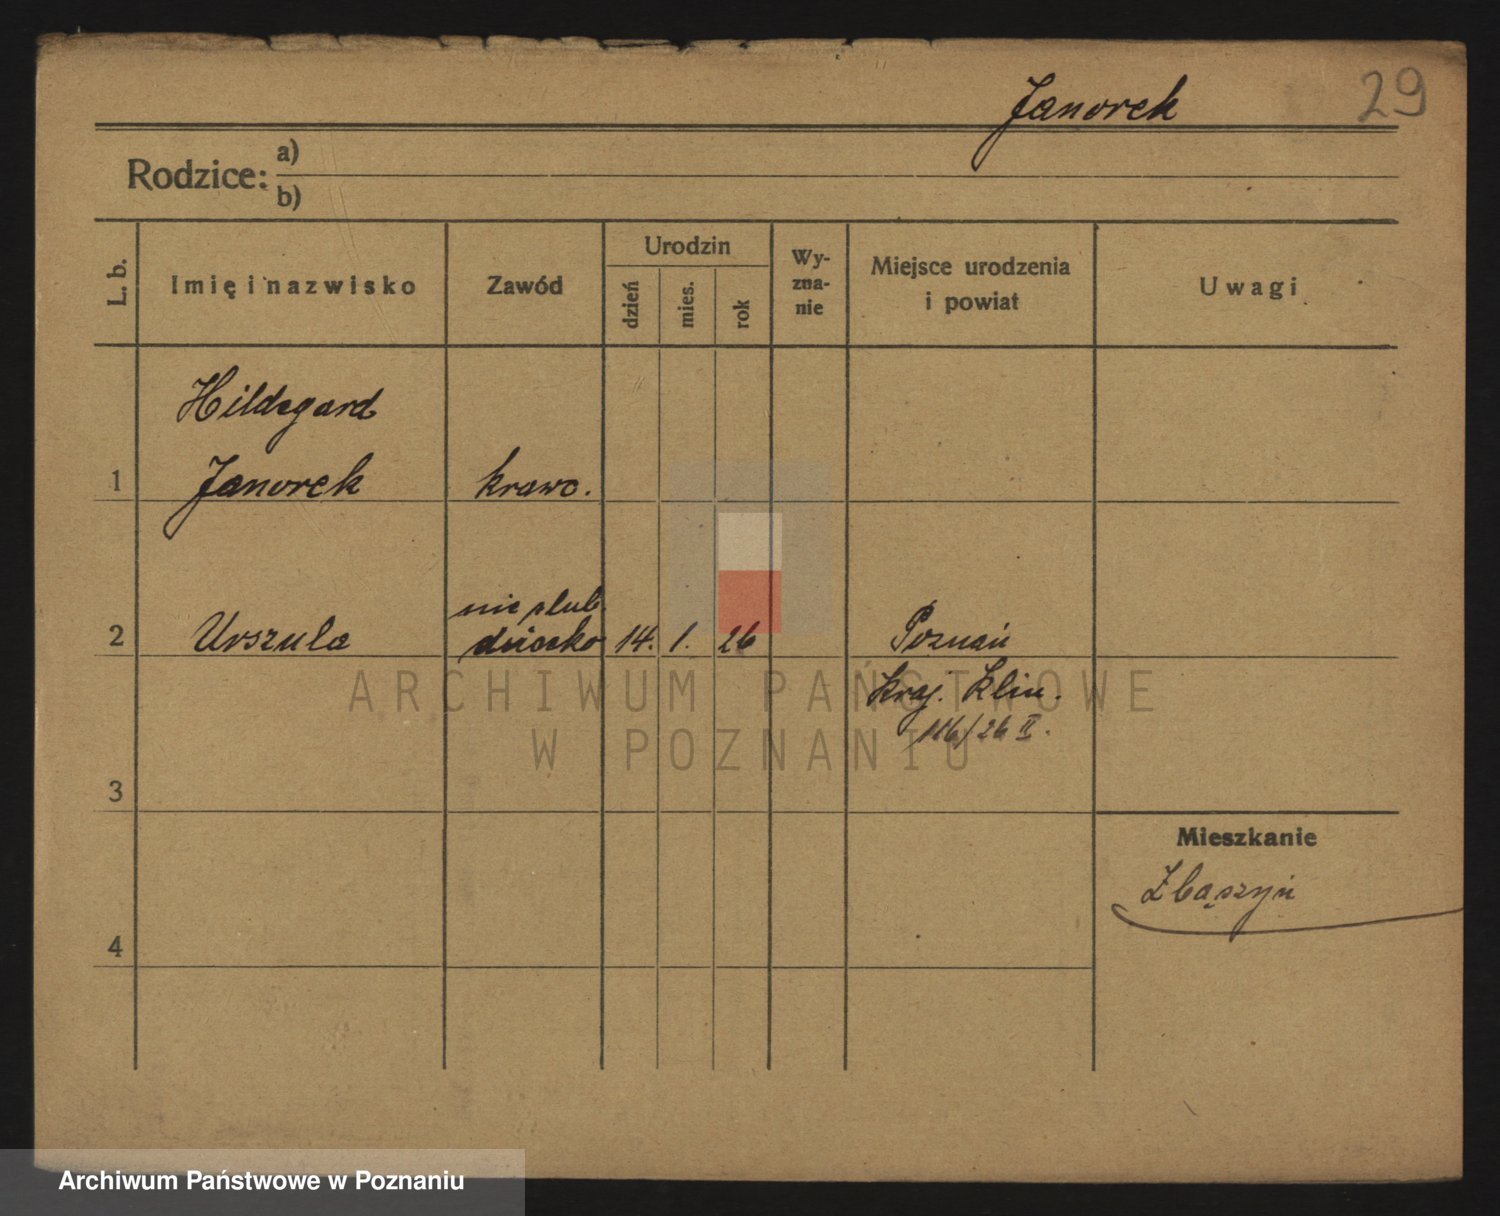 Janorek 29
Rodzice: a)
b)
L. b.
Imię i nazwisko
Zawód
Urodzin
dzień
mies.
rok
Wy-
zna-
nie
Miejsce urodzenia
i powiat
Uwagi
Hildegard
1 Janorek krawc.
nie ślub.
2 Urszula dziecko 14. 1. 26 Poznań
Kraj. Klin.
116/26 II.
3
Mieszkanie
Zbąszyń
4
ARCHIWUM PAŃSTWOWE
W POZNANIU
Archiwum Państwowe w Poznaniu